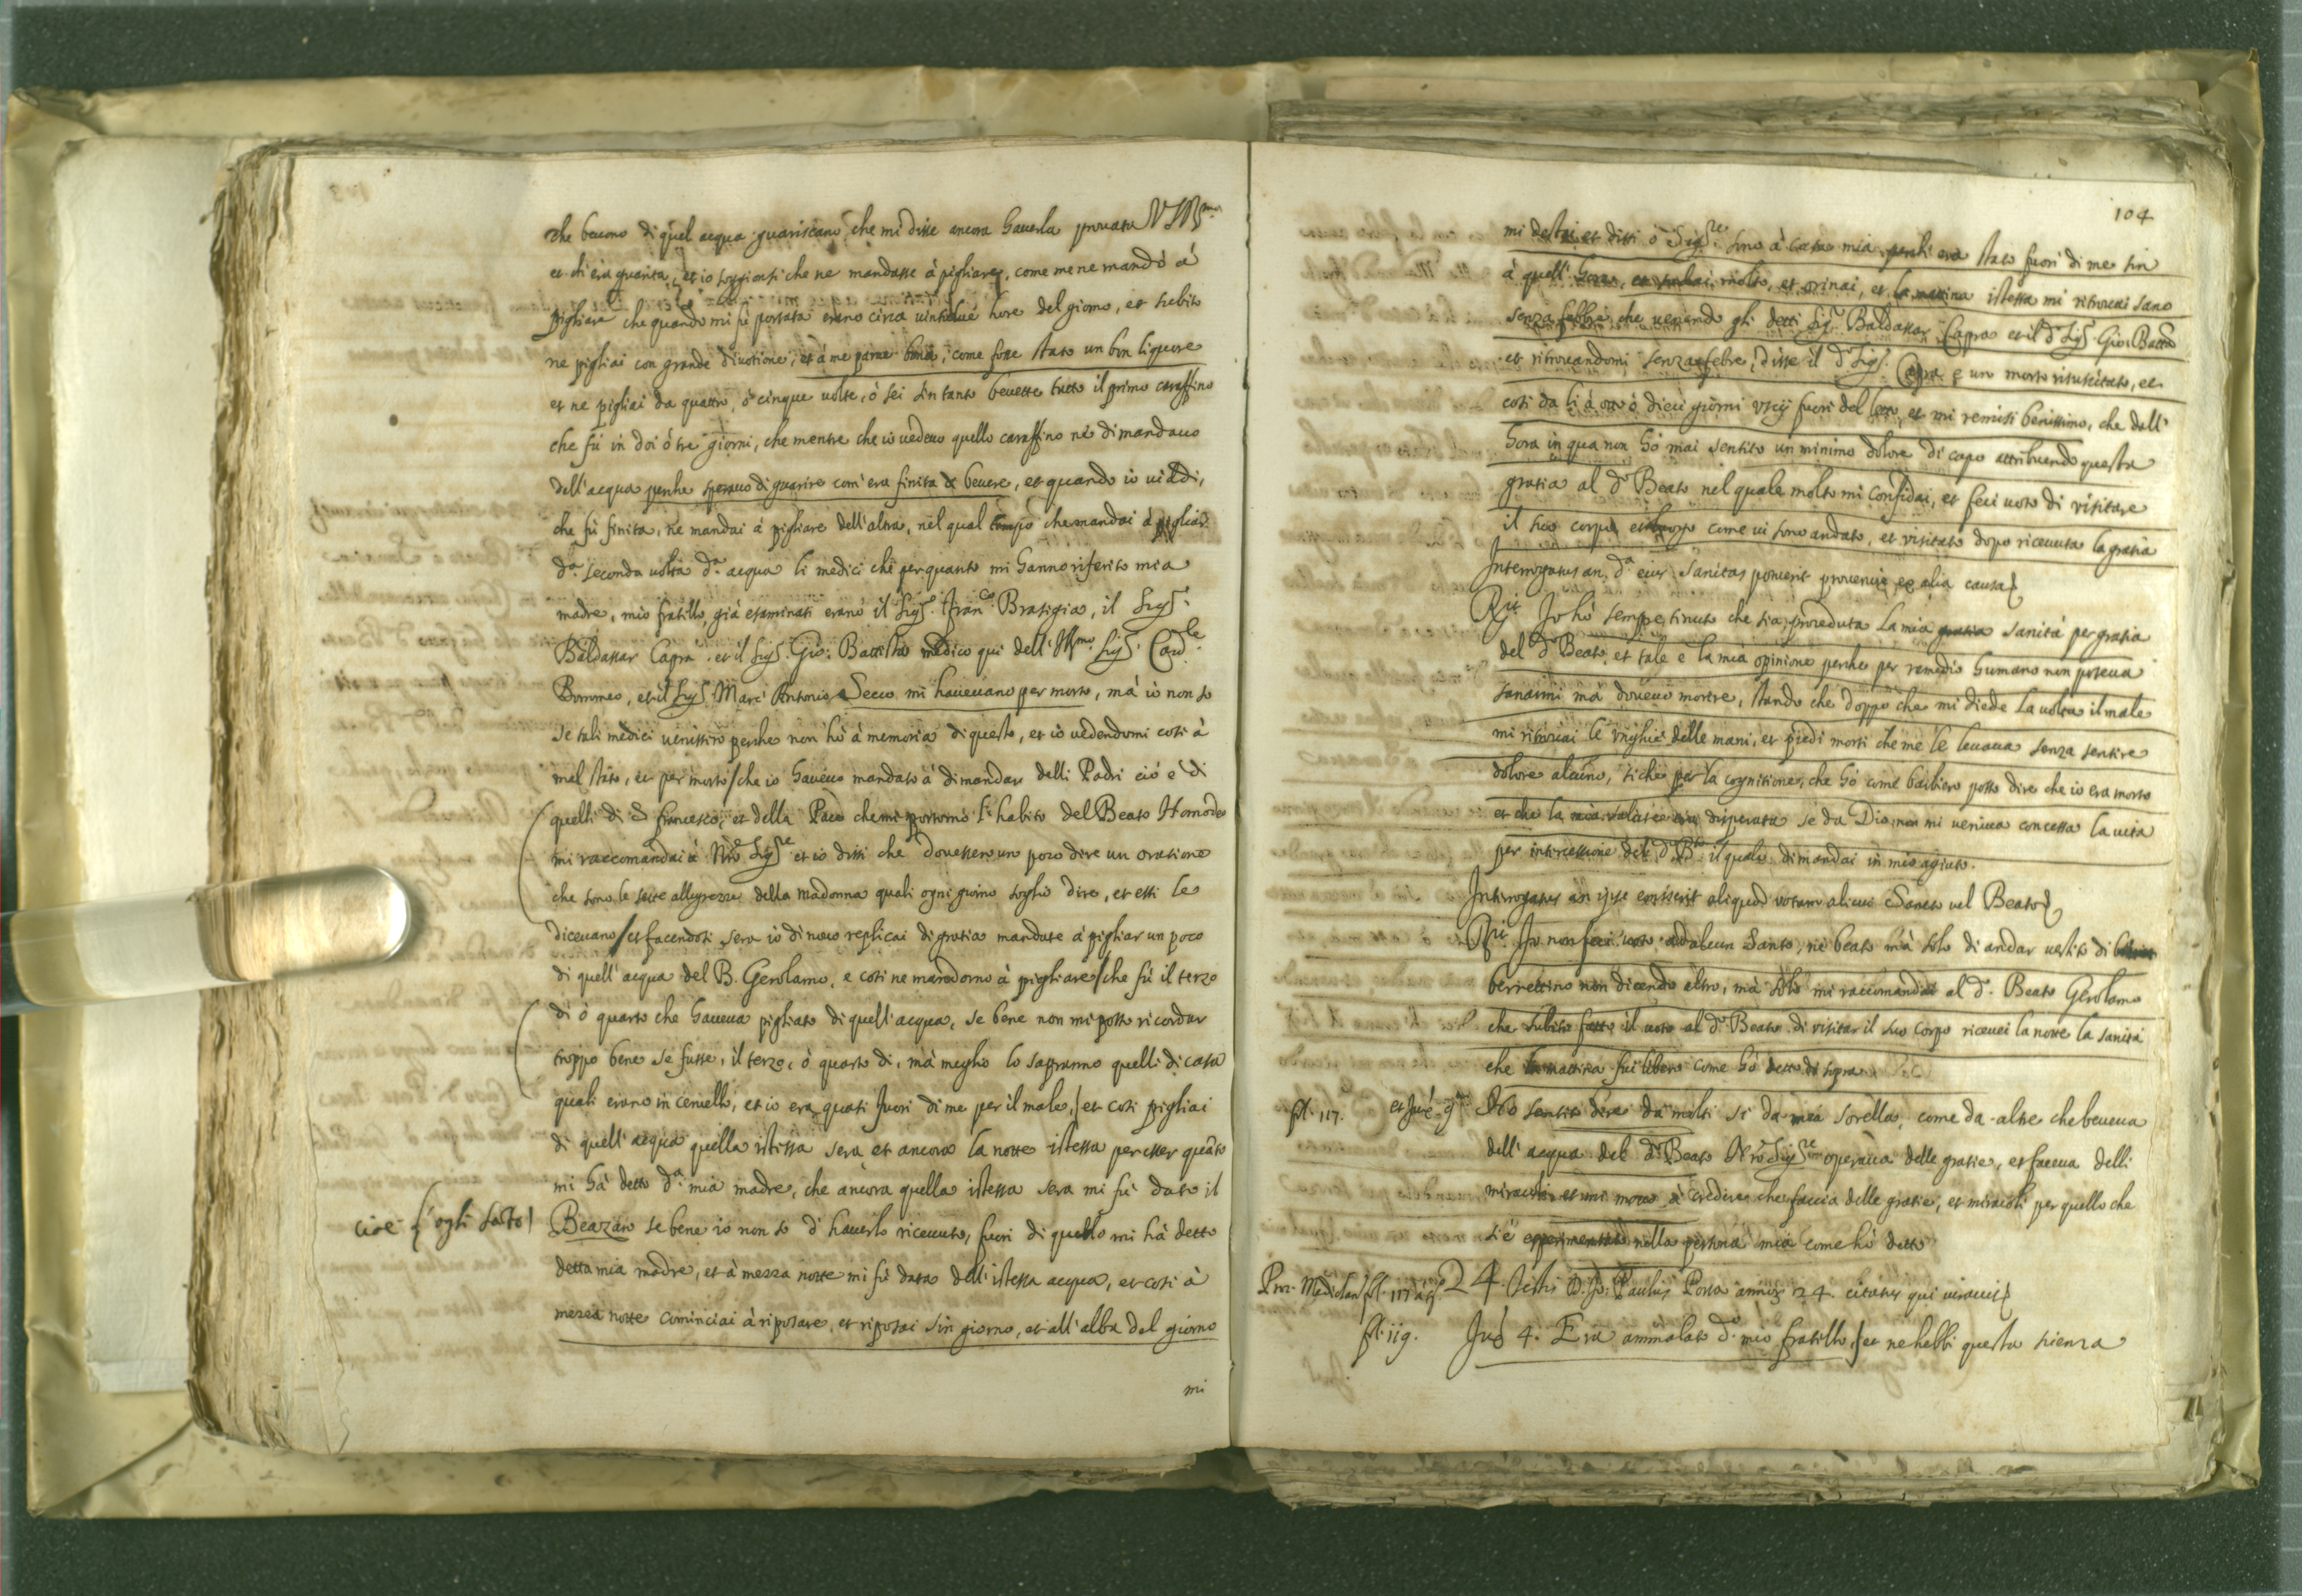 che beuono di quel acqua guariscano, che mi disse ancora hauerla prouata
et ch'era guarita, et io soggionsi che ne mandasse à pigliare, come me ne mandò à
pigliare che quando mi fù portata erano circa uintidue hore del giorno, et subito
ne pigliai con grande diuotione, et à me parue bona, come fosse stato un bon liquore
et ne pigliai da quattro, ò cinque uolte, ò sei sin tanto beuette tutto il primo caraffino
che fù in doi ò tre giorni, che mentre che io uedeuo quello caraffino nè dimandauo
dell'acqua perche sperauo di guarire com'era finita di beuere, et quando io uiddi,
che fù finita, ne mandai à pigliare dell'altra, nel qual tempo che mandai à pigliar
d.a seconda uolta d.a acqua li medici che per quanto mi hanno riferito mia
madre, mio fratello, già esaminati erano il Sig.r Fran.co Brasigia, il Sig.r
Baldassar Capra et il Sig.r Gio: Battista medico qui dell'Ill.mo Sig.r Card.le
Borromeo, et il Sig.r Marc'Antonio Secco mi haueuano per morto, mà io non so
se tali medici uenissero perche non hò à memoria di questo, et io uedendomi così à
mal stato, et per morto / che io haueuo mandato à dimandar delli Padri ciò è di
quelli di S. Francesco, et della Pace che mi portorno l'habito del Beato Homodeo
mi raccomandai à Nro Sig.re et io dissi che douessero un poco dire un oratione
che sono le sette allegrezze della Madonna quali ogni giorno soglio dire, et essi le
diceuano / et facendosi sera io di nouo replicai di gratia mandate à pigliar un poco
di quell'acqua del B. Gerolamo, e così ne mandorno à pigliare / che fù il terzo
dì ò quarto che haueua pigliato di quell'acqua, se bene non mi posso ricordar
troppo bene se fusse, il terzo, ò quarto dì, mà meglio lo sapranno quelli di casa
quali erano in ceruello, et io era quasi fuori di me per il male, / et così pigliai
di quell'acqua quella istessa sera et ancora la notte istessa per esser quãto
mi hà detto d.a mia madre, che ancora quella istessa sera mi fù dato il
cioè l'oglio santo
Beazan se bene io non so d'hauerlo riceuuto, fuori di quello mi hà detto
detta mia madre, et à mezza notte mi fù data dell'istessa acqua, et così à
mezza notte cominciai à riposare, et riposai sin giorno, et all'alba del giorno
mi
104
mi destai et dissi ò Sig.re sono à casa mia, perche era stato fuori di me sin
à quell'hora, et sudai molto, et orinai, et la mattina istessa mi ritrouai sano
senza febbre, che uenendo gli detti Sig.r Baldassar Capra et il d.o Sig.r Gio: Batta
et ritrouandomi senza febre, disse il d.o Sig.r Capra è un morto risuscitato, et
così da lì à otto ò dieci giorni uscij fuori del letto, et mi remisi benissimo, che dall'
hora in qua non hò mai sentito un minimo dolore di capo attribuendo questa
gratia al d.o Beato nel quale molto mi confidai, et feci uoto di visitare
il suo corpo, come ui sono andato, et visitato dopo riceuuta la gratia
Interrogatus an d.a eius sanitas potuerit prouenire ex alia causa
R.it Io hò sempre tenuto che sia proceduta la mia gratia sanità per gratia
del d.o Beato, et tale è la mia opinione perche per remedio humano non poteua
sanarmi mà doueuo morire, stando che doppo che mi diede la uolta il male
mi ritrouai le unghie delle mani, et piedi morti che me le leuaua senza sentire
dolore alcuno, siche per la cognitione, che hò come barbiero posso dire che io era morto
et che la mia salute era disperata se da Dio non mi ueniua concessa la uita
per intercessione del d.o B.to il quale dimandai in mio agiuto.
Interrogatus an ipse emiserit aliquod votum alicui Sancto uel Beato
R.it Io non feci uoto ad alcun Santo, nè beato mà solo di andar uestito di
berrettino non dicendo altro, mà solo mi raccomandai al d.o Beato Gerolamo
che subito fatto il uoto al d.o Beato di visitar il suo corpo riceuei la notte la sanità
che la mattina fui libero come hò detto di sopra
fol. 117. et sup. 9. Hò sentito dire da molti sì da mia sorella, come da altre che beueua
dell'acqua del d.o Beato Nro Sig.re operaua delle gratie, et faceua delli
miracoli et mi mouo à credere che faccia delle gratie, et miracoli per quello che
s'è esperimentato nella persona mia come hò detto
Proc. Mediolan. fol. 117 à t.o 24. Testis D. Jo: Paulus Porta annor. 24. citatus qui iurauit
fol. 119. Sup. 4. Era ammalato d.o mio fratello, / et ne hebbi questa scienza